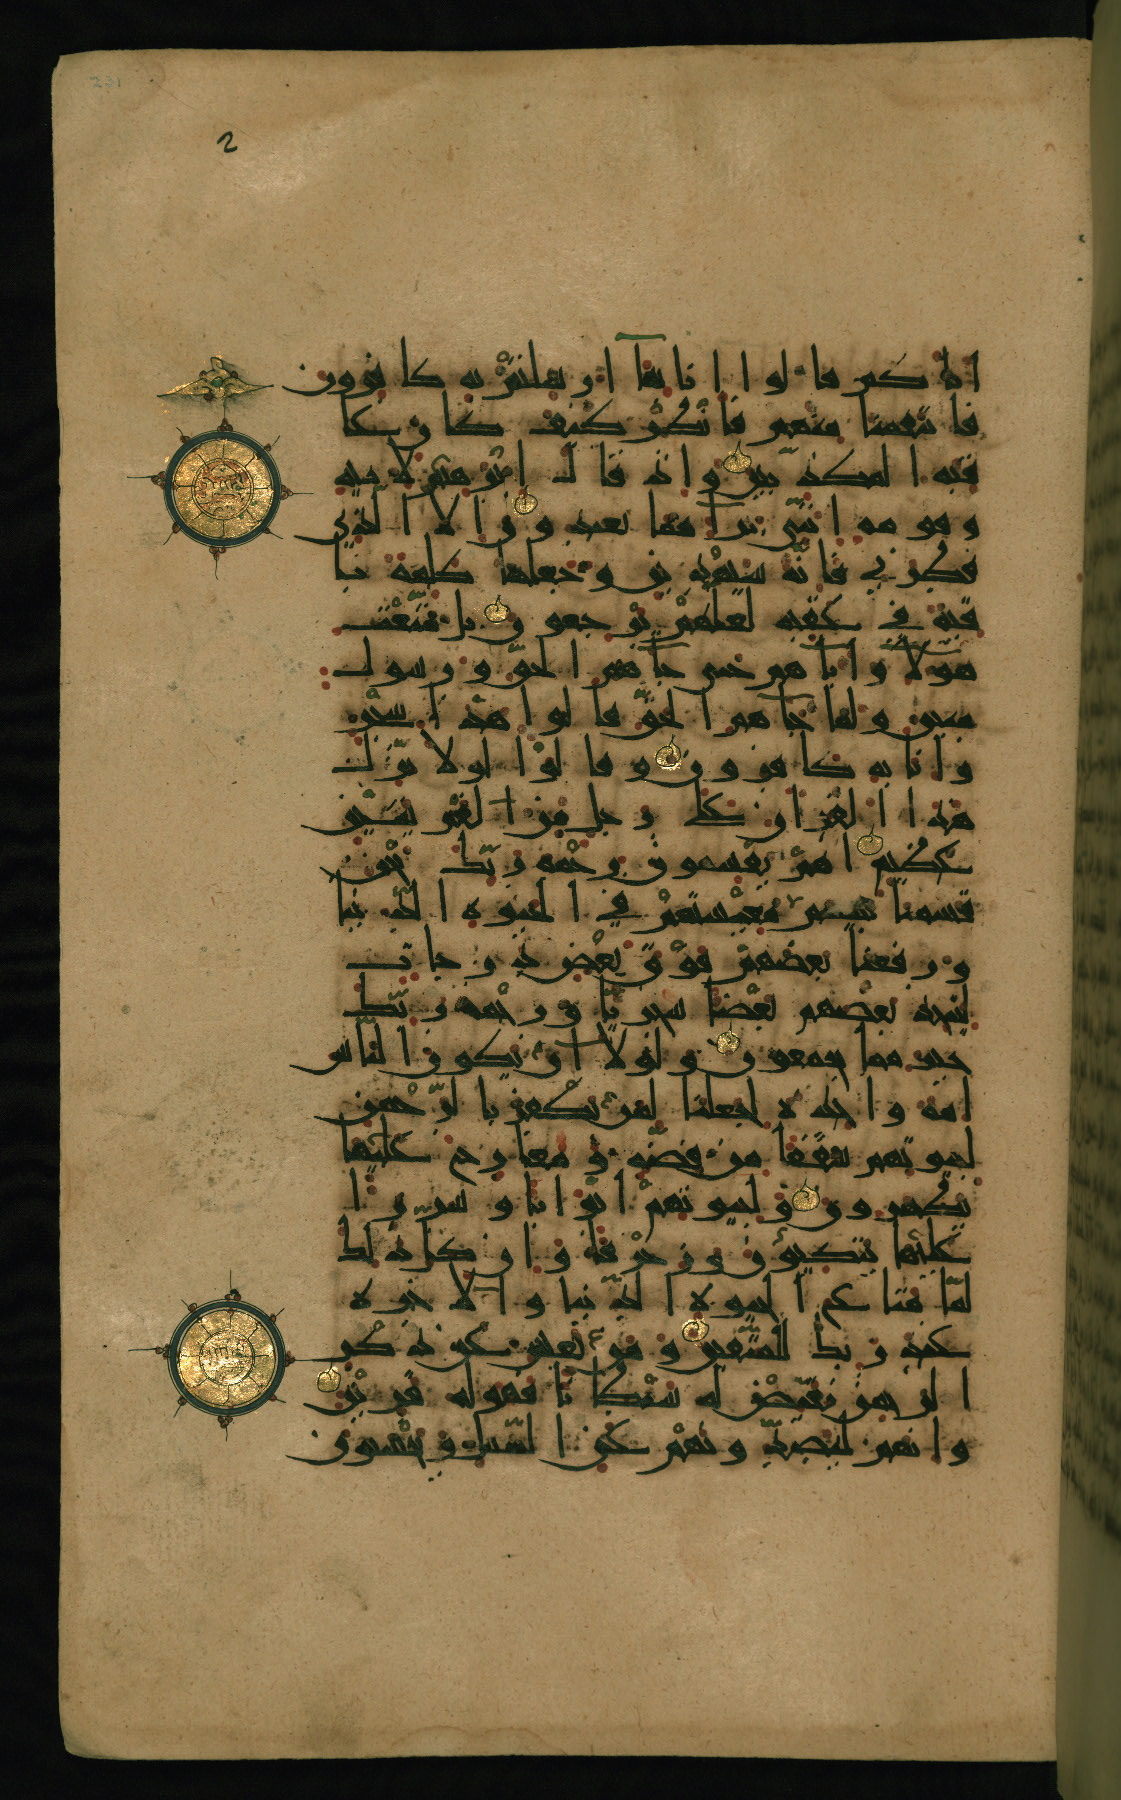 231
2
اباكم قالوا انا بما ارسلتم به كافرون
فانتقمنا منهم فانظر كيف كان عا
قبة المكذبين واذ قال ابرهيم لابيه
وقومه انني برا مما تعبدون الا الذي
فطرني فانه سيهدين وجعلها كلمة با
قية في عقبه لعلهم يرجعون بل متعت
هولا واباهم حتى جاهم الحق ورسول
مبين ولما جاهم الحق قالوا هذا سحر
وانا به كافرون وقالوا لولا نزل
هذا القران على رجل من القريتين
عظيم اهم يقسمون رحمة ربك نحن
قسمنا بينهم معيشتهم في الحيوة الدنيا
ورفعنا بعضهم فوق بعض درجات
ليتخذ بعضهم بعضا سخريا ورحمة ربك
خير مما يجمعون ولولا ان يكون الناس
امة واحدة لجعلنا لمن يكفر بالرحمن
لبيوتهم سقفا من فضة ومعارج عليها
يظهرون ولبيوتهم ابوابا وسررا
عليها يتكئون وزخرفا وان كل ذلك
لما متاع الحيوة الدنيا والاخرة
عند ربك للمتقين ومن يعش عن ذكر
الرحمن نقيض له شيطانا فهو له قرين
وانهم ليصدونهم عن السبيل ويحسبون